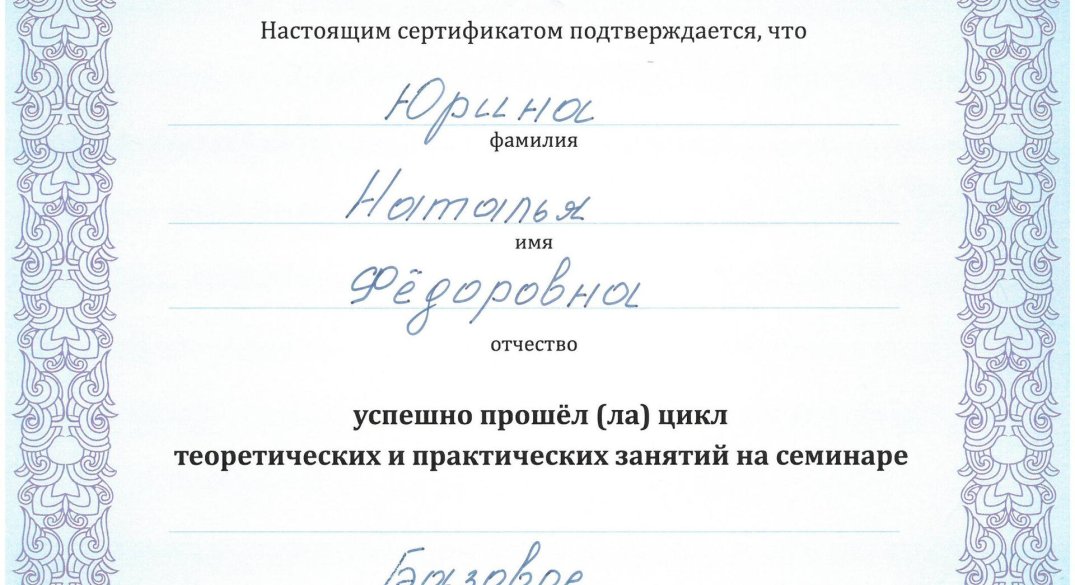 Настоящим сертификатом подтверждается, что
Юрина
фамилия
Наталья
имя
Фёдоровна
отчество
успешно прошёл (ла) цикл
теоретических и практических занятий на семинаре
Базовое